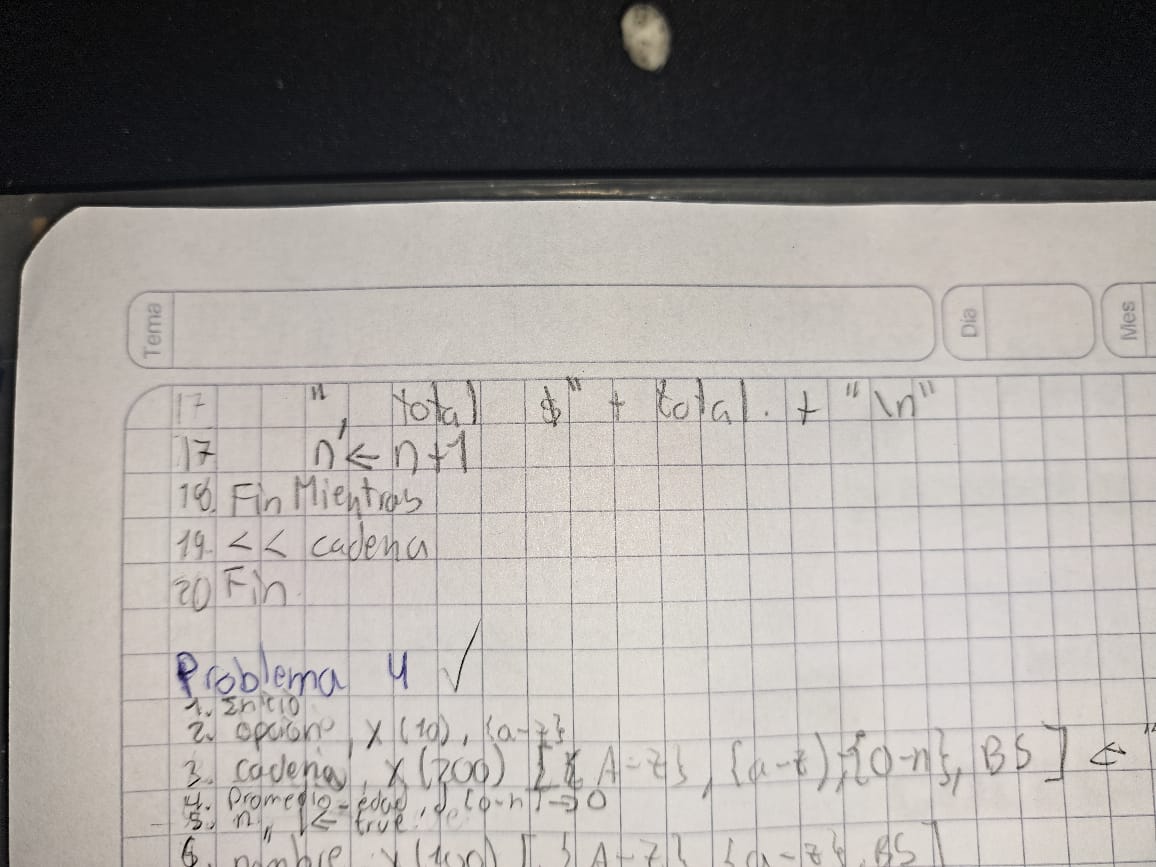 Tema
Dia
Mes
17 ", total $" + total. + "\n"
17 n ← n+1
18. Fin Mientras
19. << cadena
20 Fin.
Problema 4 ✓
1. Inicio
2. opcion, X (10), {a-z}
3. cadena, X (200) [{A-Z}, {a-z}, {0-n}, BS] ← "
4. Promedio-edad, {0-n} → 0
5. n, ← true
6. nombre, X (100) [{A-Z}, {a-z}, BS]